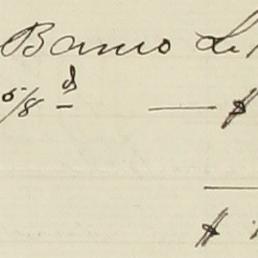 Banco de
5/8 d — $
$